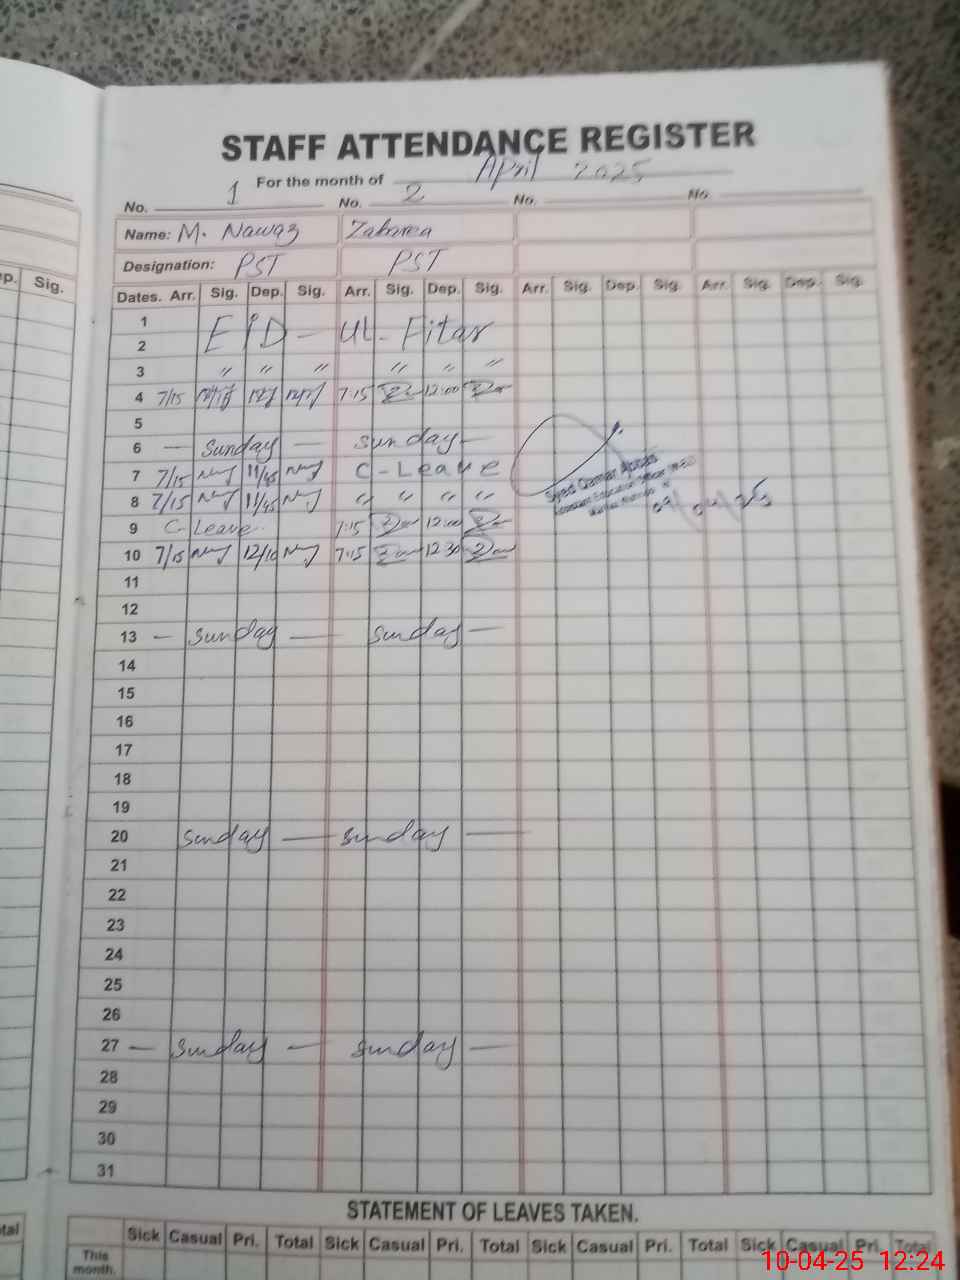 STAFF ATTENDANCE REGISTER
For the month of April 2025
No. 1 No. 2 No. No.
Name: M. Nawaz Zabarea
Designation: PST PST
p. Sig. Dates. Arr. Sig. Dep. Sig. Arr. Sig. Dep. Sig. Arr. Sig. Dep. Sig. Arr. Sig. Dep. Sig.
1
EID - UL - Fitar
2
3 〃 〃 〃 〃 〃 〃
4 7/15 7:15 12:00
5
6 — Sunday — Sunday —
7 7/15 11/45 C-Leave
8 7/15 11/45 〃 〃 〃 〃
Syed Qamar Abbas
Assistant Education Officer
09/04/25
9 C-Leave 7:15 12:00
10 7/15 12/10 7:15 12:30
11
12
13 — Sunday — Sunday —
14
15
16
17
18
19
20 Sunday — Sunday —
21
22
23
24
25
26
27 — Sunday — Sunday —
28
29
30
31
STATEMENT OF LEAVES TAKEN.
tal Sick Casual Pri. Total Sick Casual Pri. Total Sick Casual Pri. Total Sick Casual Pri. Total
This
month.
10-04-25 12:24